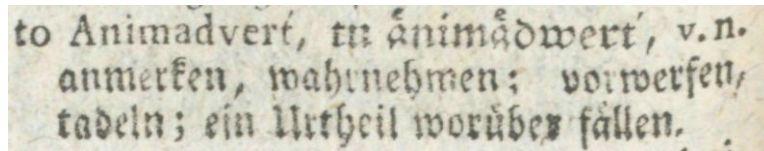 to Animadvert, tu ånimådwert, v. n.
anmerken, wahrnehmen; vorwerfen,
tadeln; ein Urtheil worüber fällen.